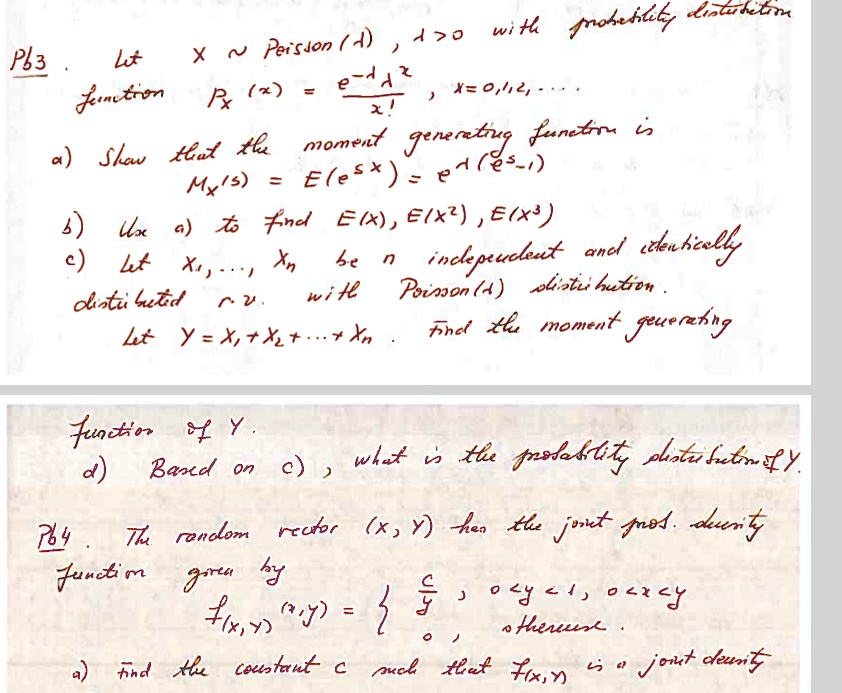 Pb3. Let X ~ Poisson(λ), λ>0 with probability distribution
function P_X(x) = e^{-λ} λ^x / x! , x=0,1,2,....
a) Show that the moment generating function is
M_X(s) = E(e^{sX}) = e^{λ(e^s-1)}
b) Use a) to find E(X), E(X²), E(X³)
c) Let X₁,..., Xₙ be n independent and identically
distributed r.v. with Poisson(λ) distribution.
Let Y = X₁+X₂+...+Xₙ. Find the moment generating
function of Y.
d) Based on c), what is the probability distribution of Y.
Pb4. The random vector (X,Y) has the joint prob. density
function given by
f_{(X,Y)}(x,y) = { c/y , 0<y<1, 0<x<y
0 , otherwise.
a) Find the constant c such that f_{(X,Y)} is a joint density